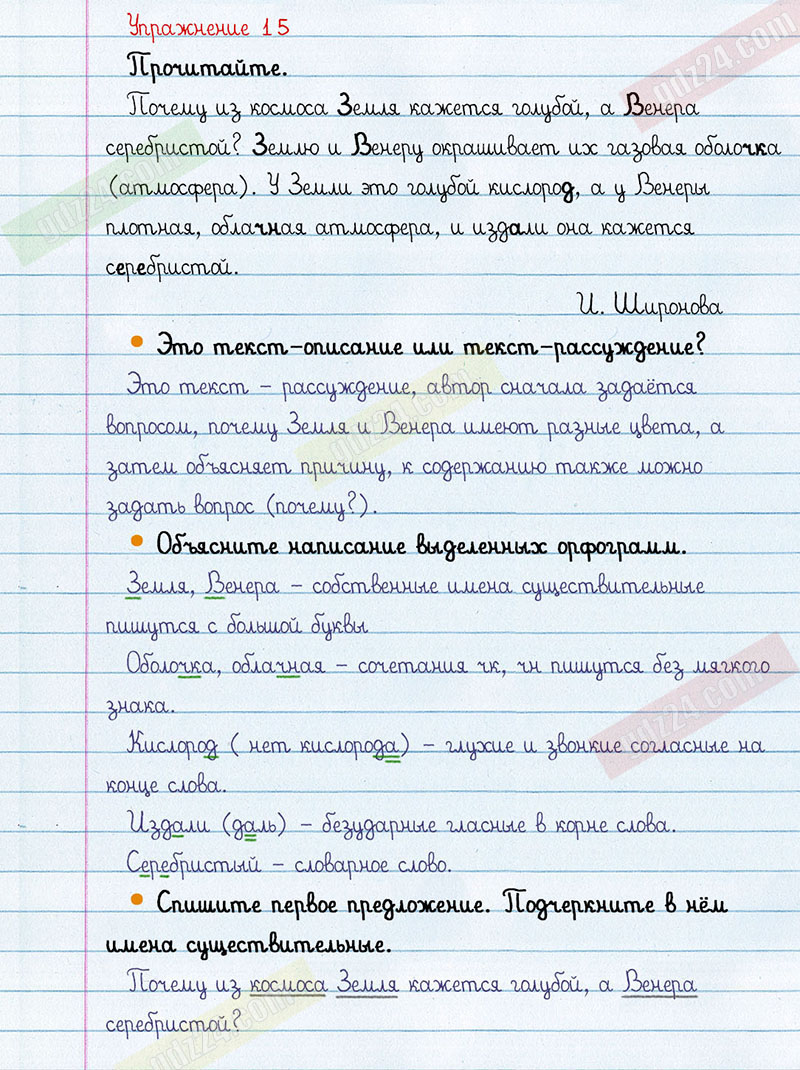 Упражнение 15
Прочитайте.
Почему из космоса Земля кажется голубой, а Венера
серебристой? Землю и Венеру окрашивает их газовая оболочка
(атмосфера). У Земли это голубой кислород, а у Венеры
плотная, облачная атмосфера, и издали она кажется
серебристой.
И. Широнова
• Это текст-описание или текст-рассуждение?
Это текст – рассуждение, автор сначала задаётся
вопросом, почему Земля и Венера имеют разные цвета, а
затем объясняет причину, к содержанию также можно
задать вопрос (почему?).
• Объясните написание выделенных орфограмм.
Земля, Венера – собственные имена существительные
пишутся с большой буквы
Оболочка, облачная – сочетания чк, чн пишутся без мягкого
знака.
Кислород ( нет кислорода) – глухие и звонкие согласные на
конце слова.
Издали (даль) – безударные гласные в корне слова.
Серебристый – словарное слово.
• Спишите первое предложение. Подчеркните в нём
имена существительные.
Почему из космоса Земля кажется голубой, а Венера
серебристой?
gdz24.com
gdz24.com
gdz24.com
gdz24.com
gdz24.com